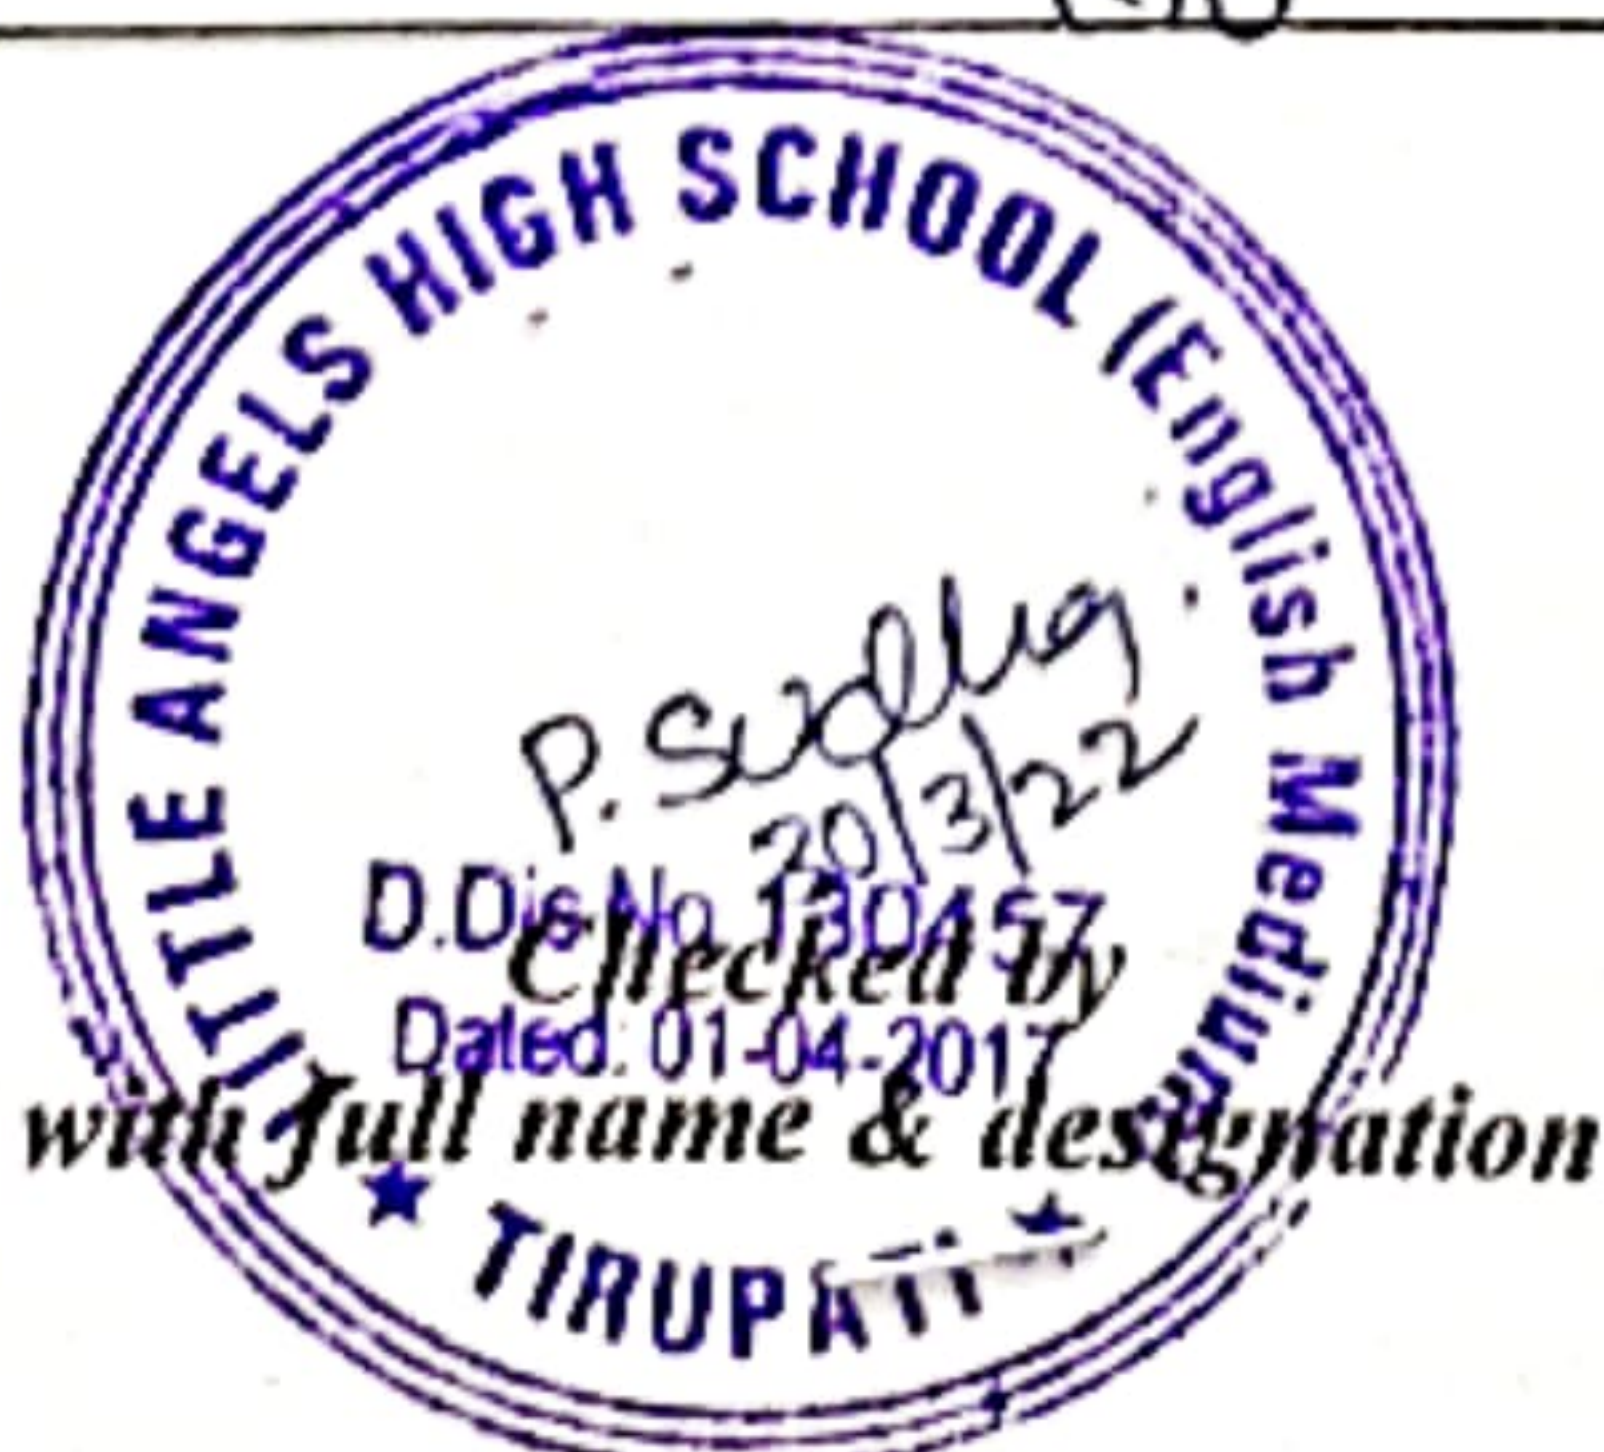 LITTLE ANGELS HIGH SCHOOL (English Medium)
P. Sudha
20/3/22
D.Dis.No. 130457
Checked by
Dated: 01-04-2017
with full name & designation
★ TIRUPATI ★